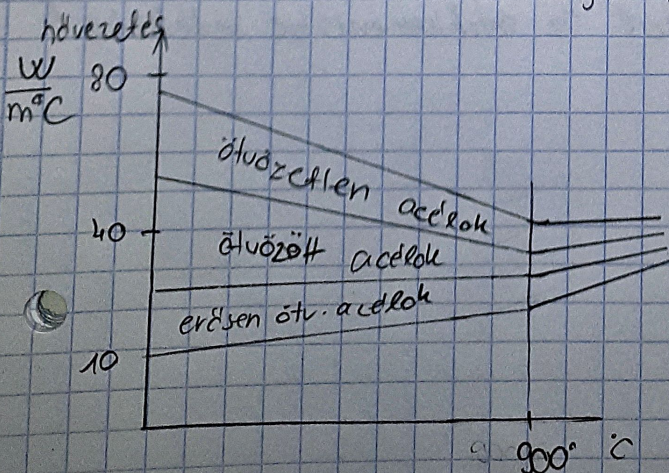 hővezetés
W
m°C
80
ötvözetlen acélok
40
ötvözött acélok
erősen ötv. acélok
10
900° °C